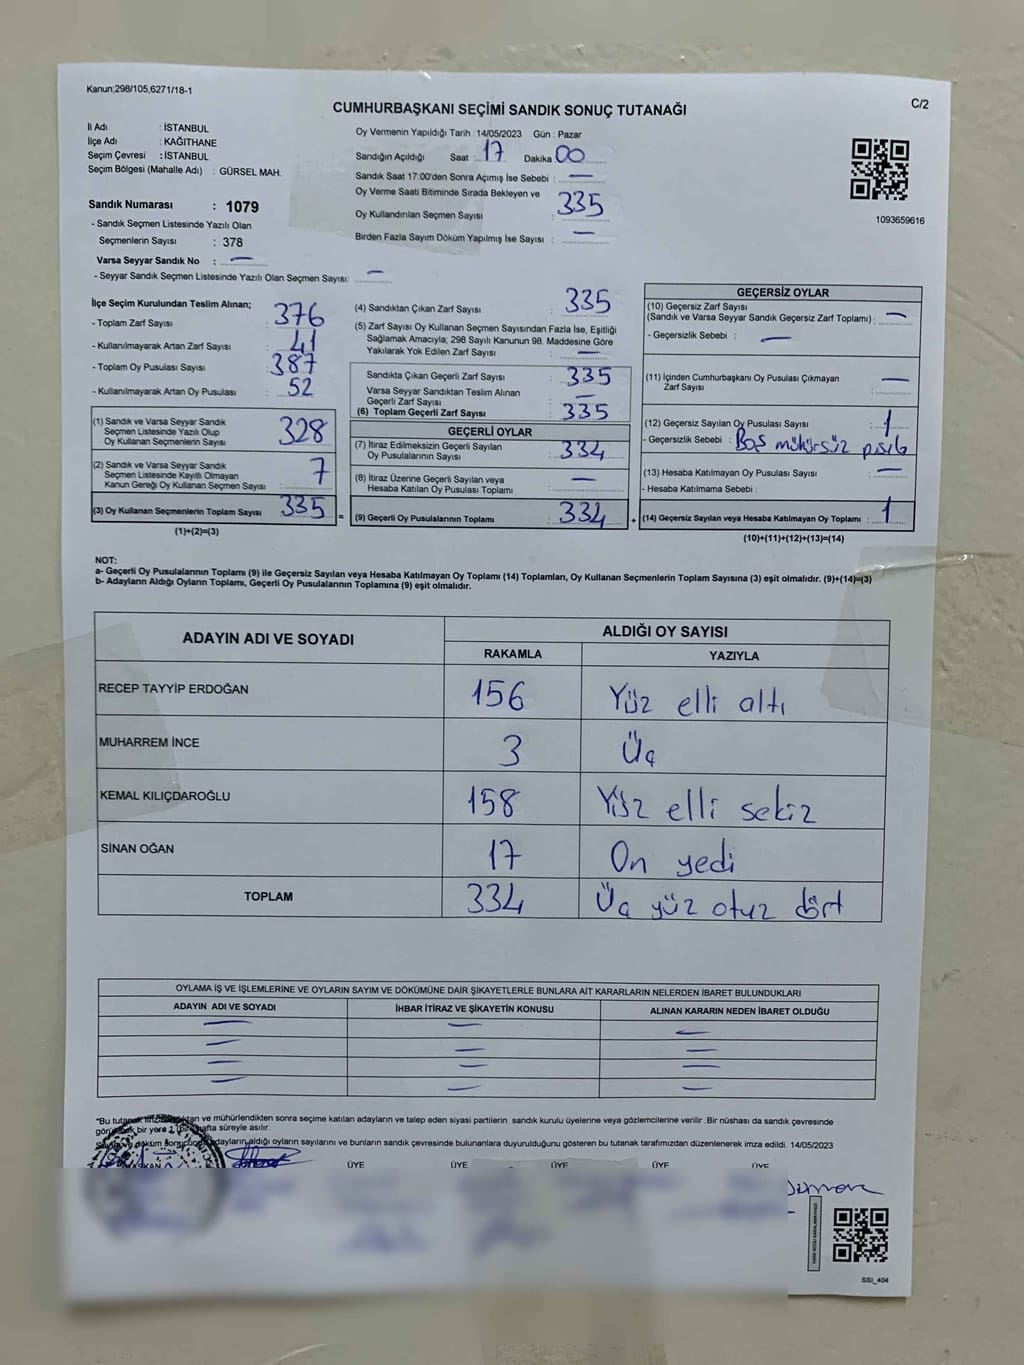 Kanun;298/105,6271/18-1
C/2
CUMHURBAŞKANI SEÇİMİ SANDIK SONUÇ TUTANAĞI
İl Adı : İSTANBUL
İlçe Adı : KAĞITHANE
Seçim Çevresi : İSTANBUL
Seçim Bölgesi (Mahalle Adı) : GÜRSEL MAH.
Sandık Numarası : 1079
- Sandık Seçmen Listesinde Yazılı Olan
Seçmenlerin Sayısı : 378
Varsa Seyyar Sandık No : —
- Seyyar Sandık Seçmen Listesinde Yazılı Olan Seçmen Sayısı: —
Oy Vermenin Yapıldığı Tarih : 14/05/2023 Gün : Pazar
Sandığın Açıldığı Saat : 17 Dakika 00
Sandık Saat 17:00'den Sonra Açımış İse Sebebi : —
Oy Verme Saati Bitiminde Sırada Bekleyen ve
Oy Kullandırılan Seçmen Sayısı : 335
Birden Fazla Sayım Döküm Yapılmış İse Sayısı : —
1093659616
İlçe Seçim Kurulundan Teslim Alınan;
- Toplam Zarf Sayısı : 376
- Kullanılmayarak Artan Zarf Sayısı : 41
- Toplam Oy Pusulası Sayısı : 387
- Kullanılmayarak Artan Oy Pusulası : 52
(1) Sandık ve Varsa Seyyar Sandık
Seçmen Listesinde Yazılı Olup
Oy Kullanan Seçmenlerin Sayısı 328
(2) Sandık ve Varsa Seyyar Sandık
Seçmen Listesinde Kayıtlı Olmayan
Kanun Gereği Oy Kullanan Seçmen Sayısı 7
(3) Oy Kullanan Seçmenlerin Toplam Sayısı 335 =
(1)+(2)=(3)
(4) Sandıktan Çıkan Zarf Sayısı : 335
(5) Zarf Sayısı Oy Kullanan Seçmen Sayısından Fazla İse, Eşitliği
Sağlamak Amacıyla; 298 Sayılı Kanunun 98. Maddesine Göre
Yakılarak Yok Edilen Zarf Sayısı : —
Sandıkta Çıkan Geçerli Zarf Sayısı : 335
Varsa Seyyar Sandıktan Teslim Alınan
Geçerli Zarf Sayısı : —
(6) Toplam Geçerli Zarf Sayısı : 335
GEÇERLİ OYLAR
(7) İtiraz Edilmeksizin Geçerli Sayılan
Oy Pusulalarının Sayısı : 334
(8) İtiraz Üzerine Geçerli Sayılan veya
Hesaba Katılan Oy Pusulası Toplamı : —
(9) Geçerli Oy Pusulalarının Toplamı : 334 +
GEÇERSİZ OYLAR
(10) Geçersiz Zarf Sayısı
(Sandık ve Varsa Seyyar Sandık Geçersiz Zarf Toplamı) : —
- Geçersizlik Sebebi : —
(11) İçinden Cumhurbaşkanı Oy Pusulası Çıkmayan
Zarf Sayısı : —
(12) Geçersiz Sayılan Oy Pusulası Sayısı : 1
- Geçersizlik Sebebi : Boş mühürsüz
(13) Hesaba Katılmayan Oy Pusulası Sayısı : —
- Hesaba Katılmama Sebebi :
(14) Geçersiz Sayılan veya Hesaba Katılmayan Oy Toplamı : 1
(10)+(11)+(12)+(13)=(14)
NOT:
a- Geçerli Oy Pusulalarının Toplamı (9) ile Geçersiz Sayılan veya Hesaba Katılmayan Oy Toplamı (14) Toplamları, Oy Kullanan Seçmenlerin Toplam Sayısına (3) eşit olmalıdır. (9)+(14)=(3)
b- Adayların Aldığı Oyların Toplamı, Geçerli Oy Pusulalarının Toplamına (9) eşit olmalıdır.
ADAYIN ADI VE SOYADI
ALDIĞI OY SAYISI
RAKAMLA YAZIYLA
RECEP TAYYİP ERDOĞAN 156 Yüz elli altı
MUHARREM İNCE 3 Üç
KEMAL KILIÇDAROĞLU 158 Yüz elli sekiz
SİNAN OĞAN 17 On yedi
TOPLAM 334 Üç yüz otuz dört
OYLAMA İŞ VE İŞLEMLERİNE VE OYLARIN SAYIM VE DÖKÜMÜNE DAİR ŞİKAYETLERLE BUNLARA AİT KARARLARIN NELERDEN İBARET BULUNDUKLARI
ADAYIN ADI VE SOYADI İHBAR İTİRAZ VE ŞİKAYETİN KONUSU ALINAN KARARIN NEDEN İBARET OLDUĞU
— — —
— — —
— — —
— — —
*Bu ve mühürlendikten sonra seçime katılan adayların ve talep eden siyasi partilerin sandık kurulu üyelerine veya gözlemcilerine verilir .Bir nüshası da sandık çevresinde
bir yere süreyle asılır.
döküm adayların aldığı oyların sayılarını ve bunların sandık çevresinde bulunanlara duyurulduğunu gösteren bu tutanak tarafımızdan düzenlenerek imza edildi. 14/05/2023
ÜYE ÜYE ÜYE ÜYE ÜYE
SSI_404